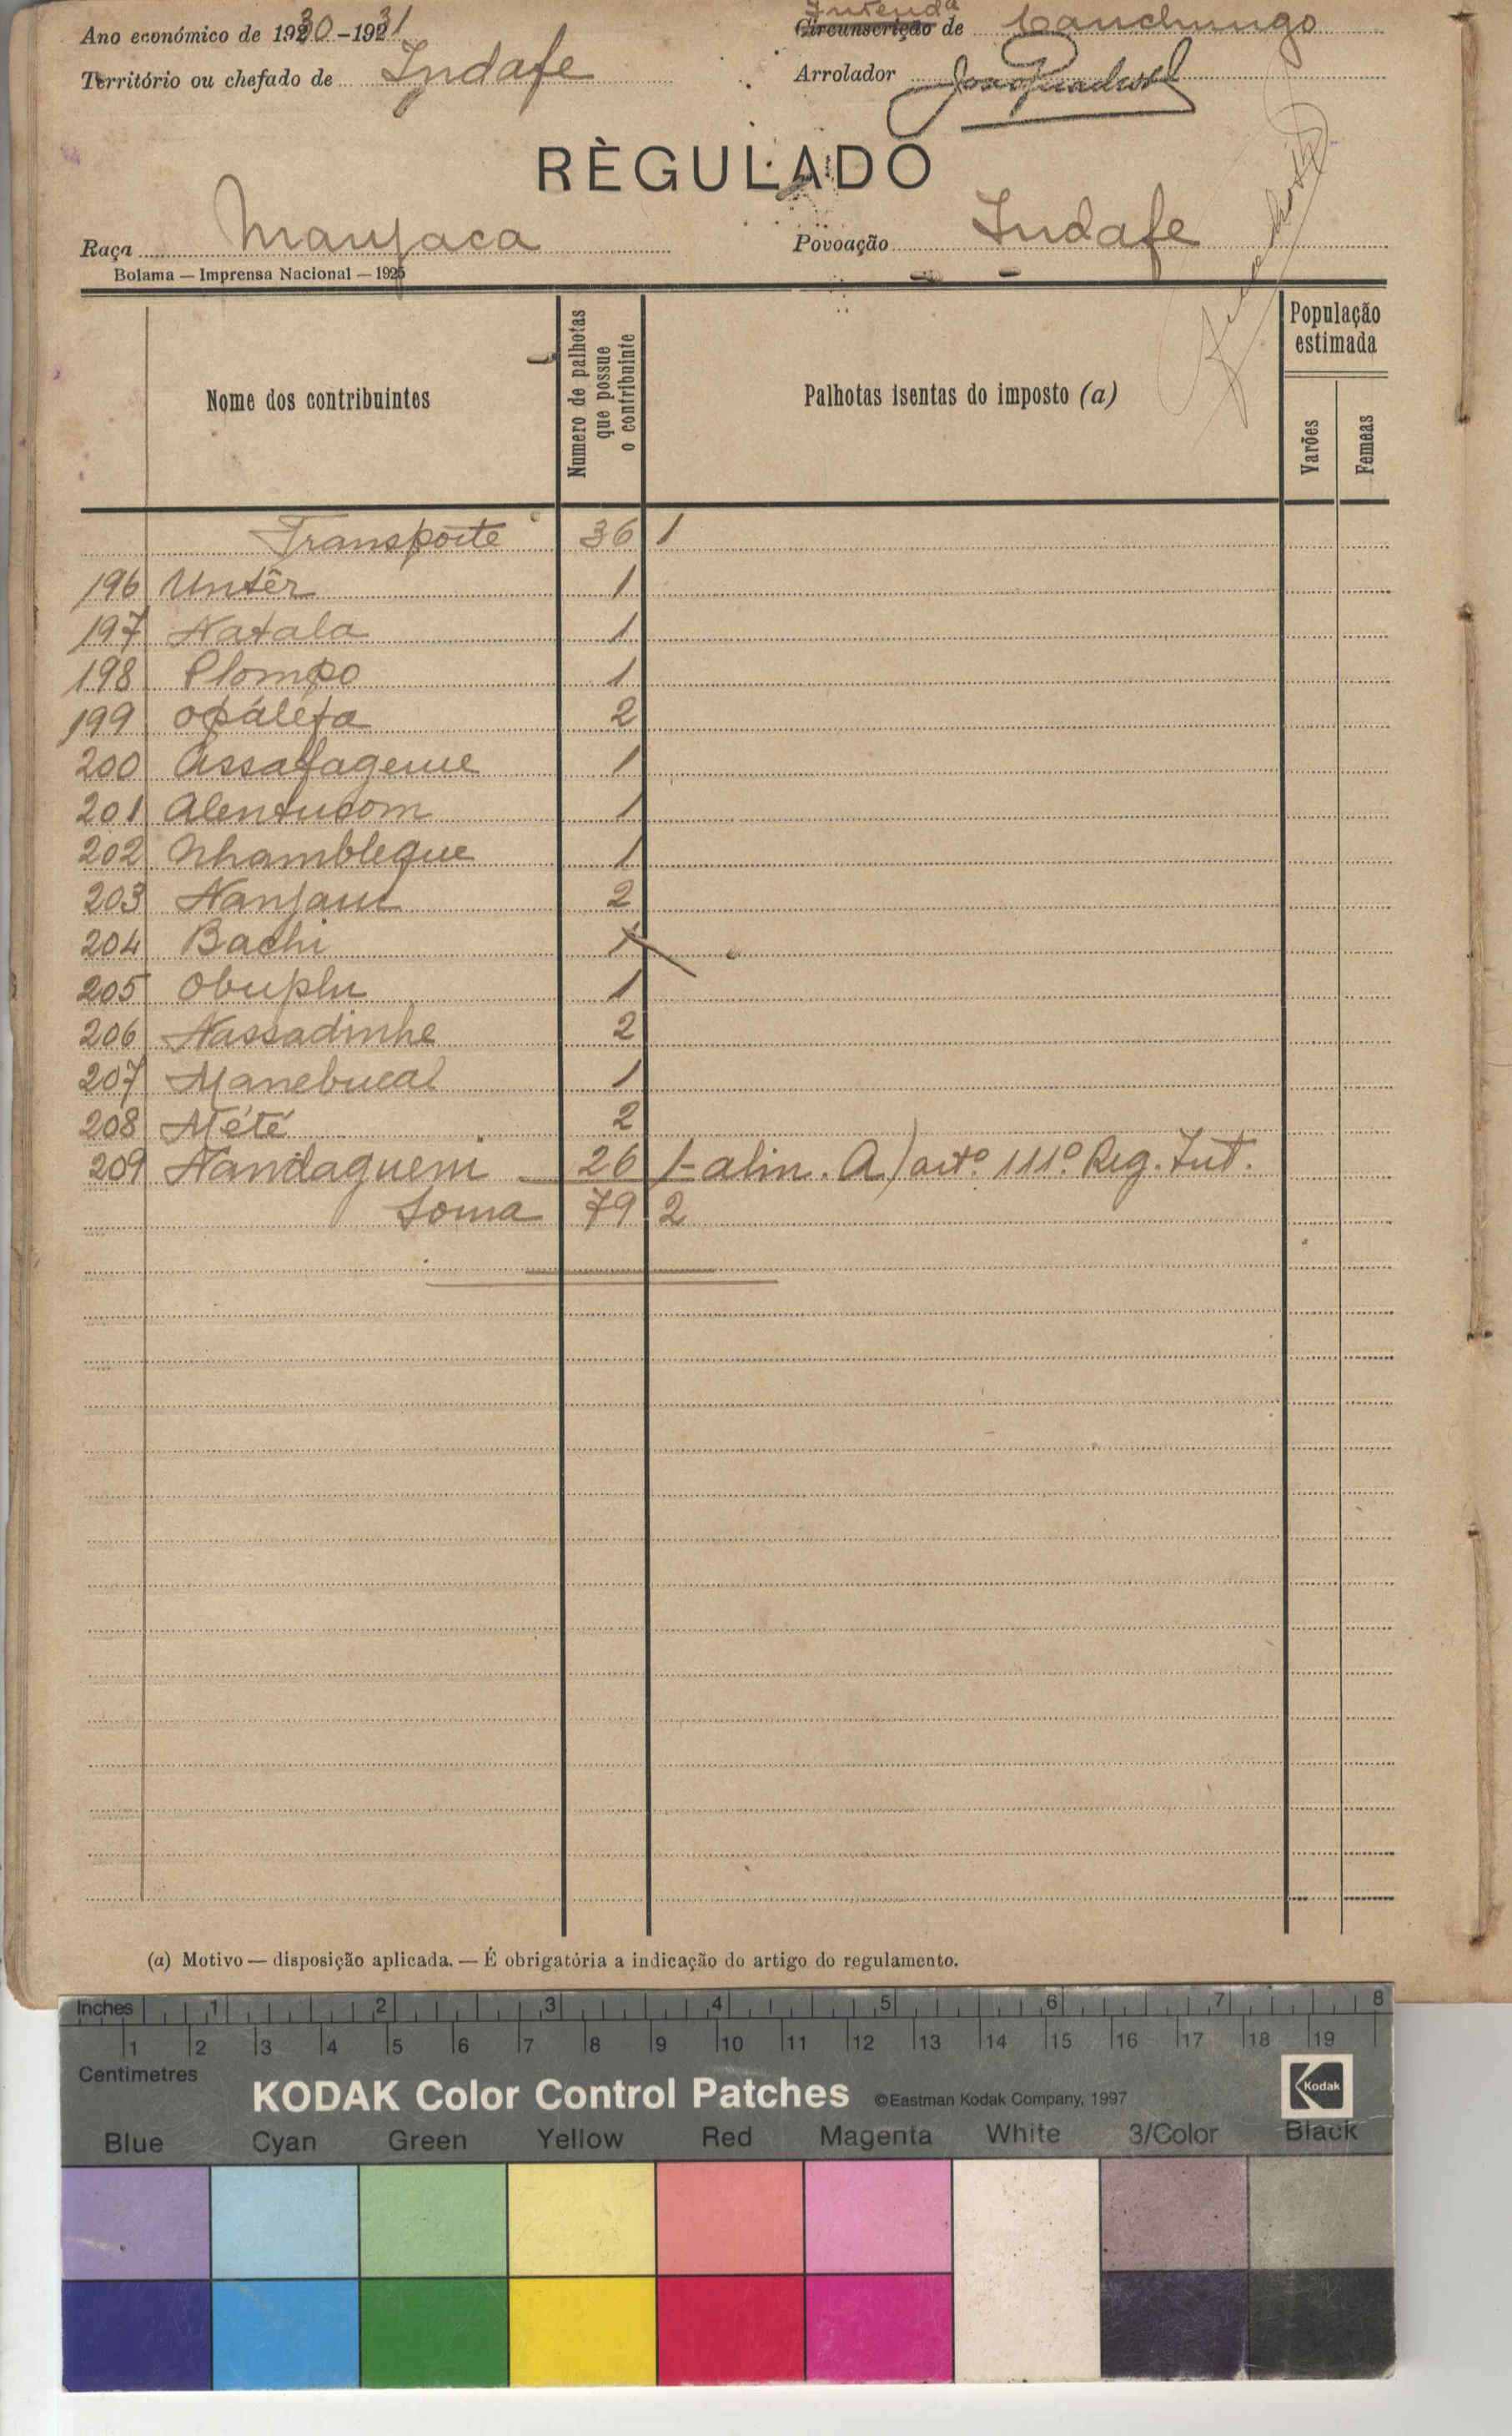 Ano económico de 1930-1931
Intend.ª
Circunscrição de Canchungo
Território ou chefado de Indafe
Arrolador
RÈGULADO
Raça Manjaca
Povoação Indafe
Bolama — Imprensa Nacional — 1925
Nome dos contribuintes
Numero de palhotas que possue o contribuinte
Palhotas isentas do imposto (a)
População estimada
Varões
Femeas
Transporte 36 1
196 Untêr 1
197 Natala 1
198 Plompo 1
199 opáléta 2
200 Assafageme 1
201 Alentucom 1
202 Nhambleque 1
203 Nanjaui 2
204 Bachi 1
205 Obuplu 1
206 Nassadinhe 2
207 Manebucal 1
208 Mété 2
209 Nandagueni 26 1-alin. A) artº 111º Reg. Int.
Soma 79 2
(a) Motivo — disposição aplicada. — É obrigatória a indicação do artigo do regulamento.
Inches 1 2 3 4 5 6 7 8
1 2 3 4 5 6 7 8 9 10 11 12 13 14 15 16 17 18 19
Centimetres
KODAK Color Control Patches ©Eastman Kodak Company, 1997
Kodak
Blue Cyan Green Yellow Red Magenta White 3/Color Black